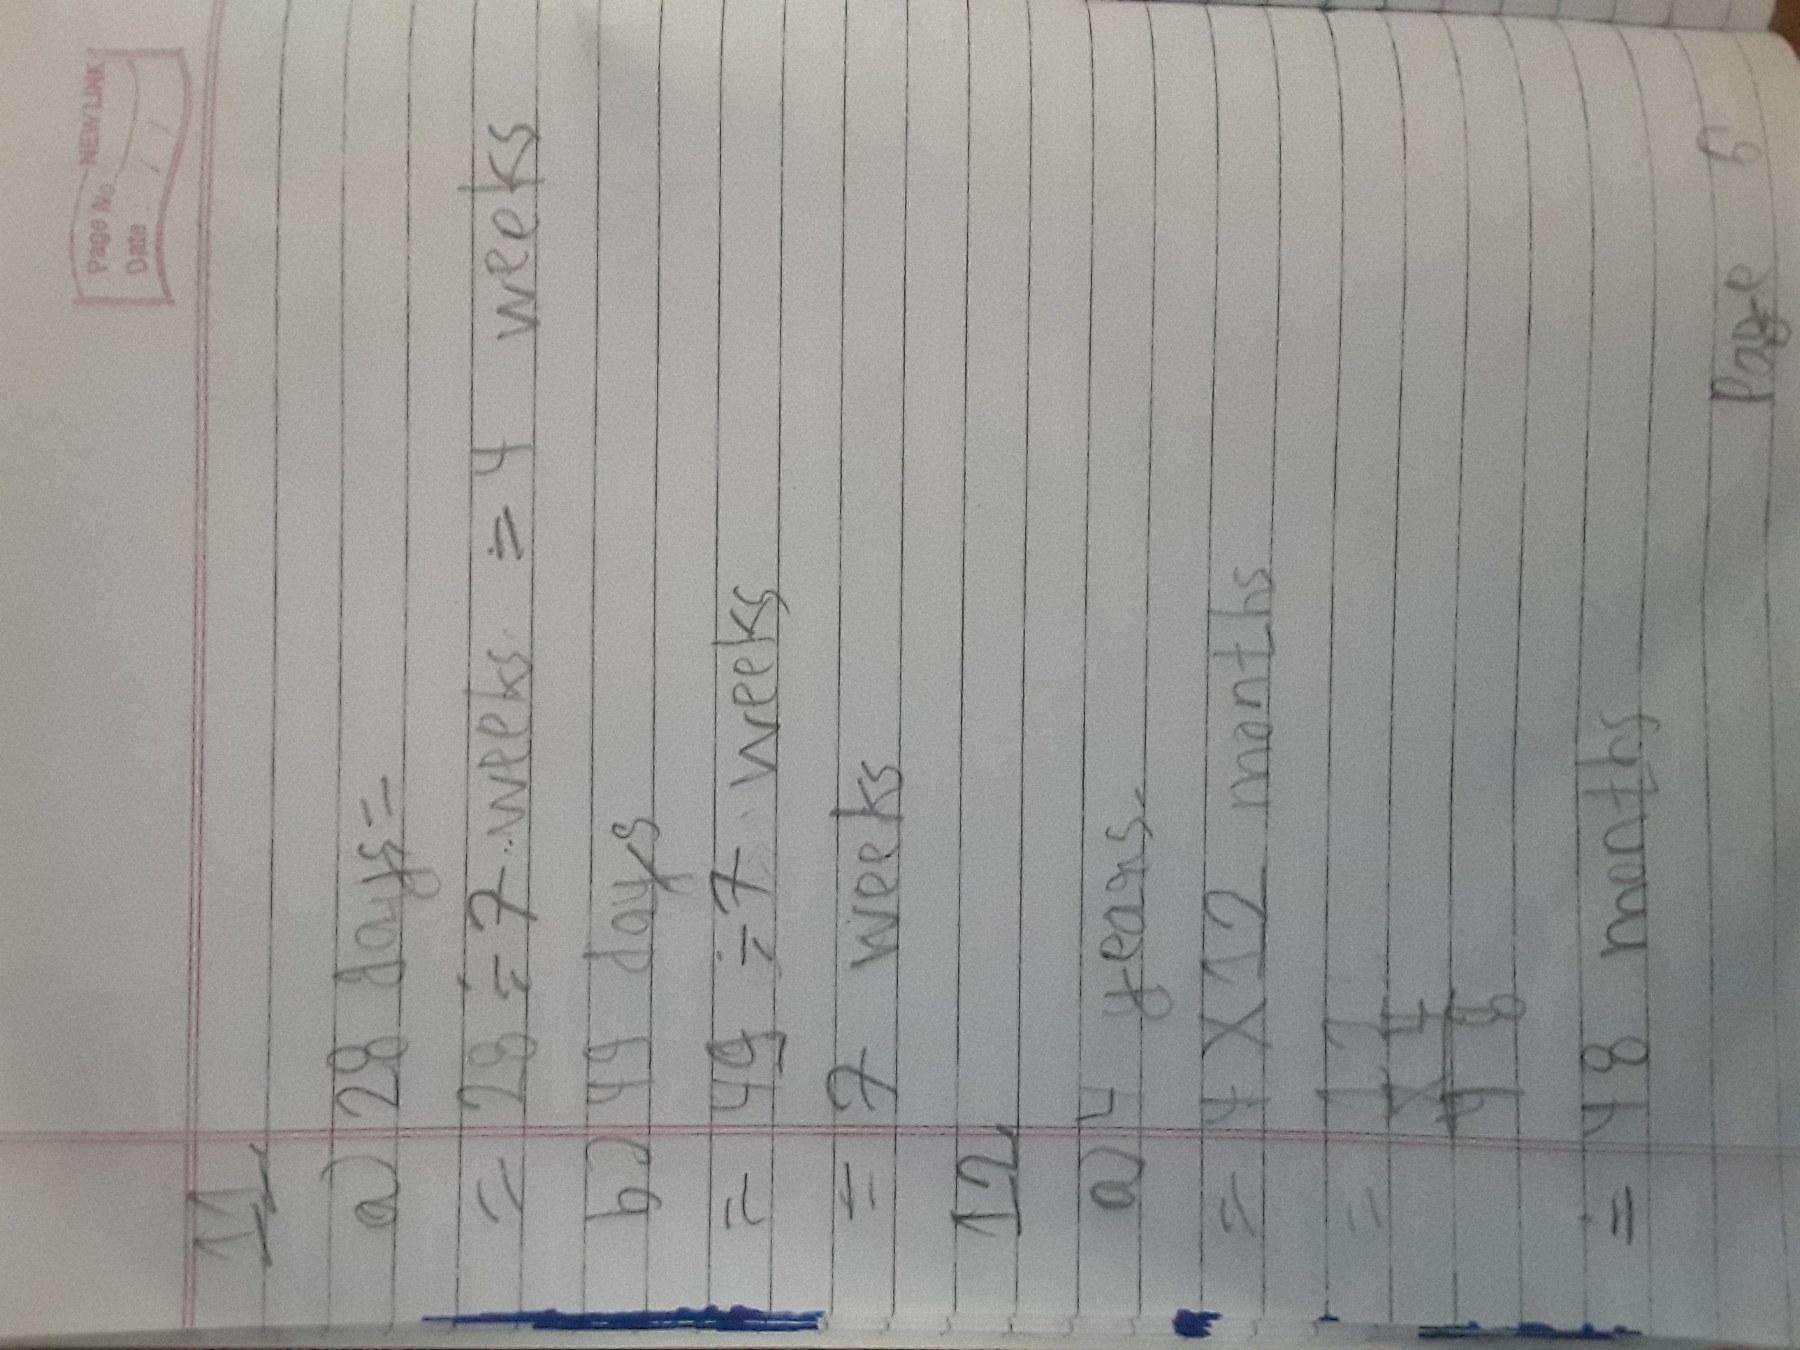 NEW LINK
Page No.
Date / /
11
a) 28 days=
= 28 ÷ 7 weeks = 4 weeks
b) 49 days
= 49 ÷ 7 weeks
= 7 weeks
12
a) 4 years.
= 4 X 12 months
= 12
X 4
48
= 48 months
Page 6